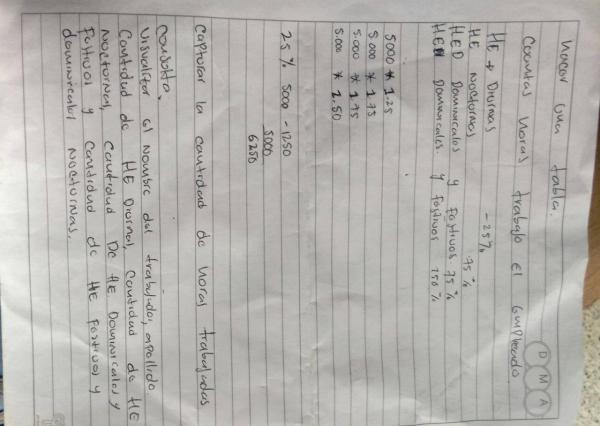 D M A
hacer una tabla.
Cuantas horas trabajo el Empleado
HE → Diurnas - 25%
HE Nocturnas 75%
HED Dominicales y Festivos. 75%
HEN Dominicales. y Festivos 150%
5000 * 1.25
5.000 * 1.75
5.000 * 1.75
5.000 * 2.50
25% 5000 - 1250
5000
6250
Capturar la cantidad de horas trabajadas
Consulta.
Visualizar el Nombre del trabajador, apellido
Cantidad de HE Diurna, Cantidad de HE
Nocturna, Cantidad De HE Dominicales y
Festivos y Cantidad de HE Festivos y
dominicales Nocturnas.